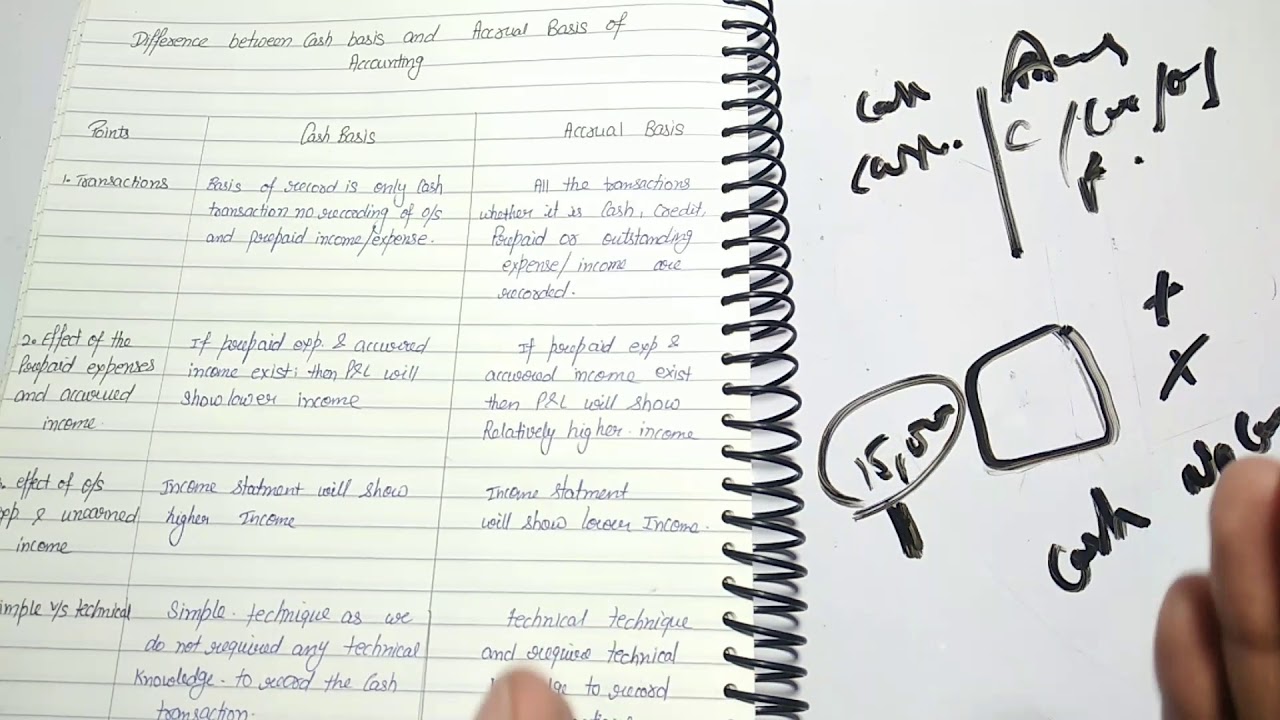 Difference between Cash basis and Accrual Basis of
Accounting
Points
Cash Basis
Accrual Basis
1. Transactions
Basis of record is only Cash
transaction no recording of o/s
and prepaid income/expense.
All the transactions
whether it is Cash, Credit,
Prepaid or outstanding
expense/ income are
recorded.
2. Effect of the
Prepaid expenses
and accured
income.
If prepaid exp. & accured
income exist; then P&L will
show lower income
If prepaid exp &
accured income exist
then P&L will show
Relatively higher income
effect of o/s
& unearned
income
Income statment will show
higher Income
Income statment
will show lower Income.
v/s technical
Simple technique as we
do not required any technical
Knowledge to record the Cash
transaction.
technical technique
and require technical
to record
Cash
Cash.
C
15,000
Cash